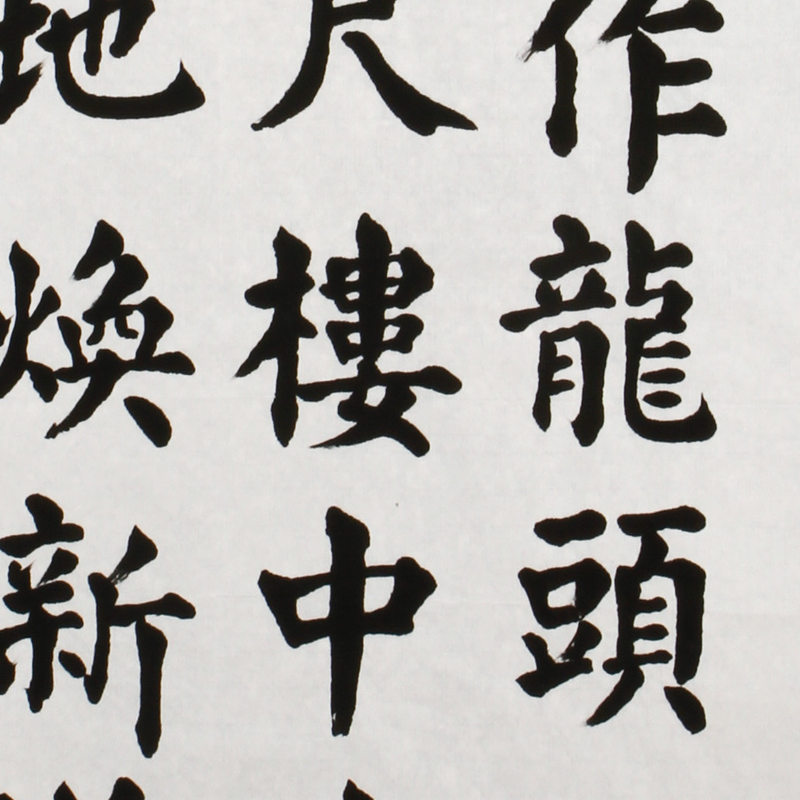 作龍頭
尺樓中
地煥新